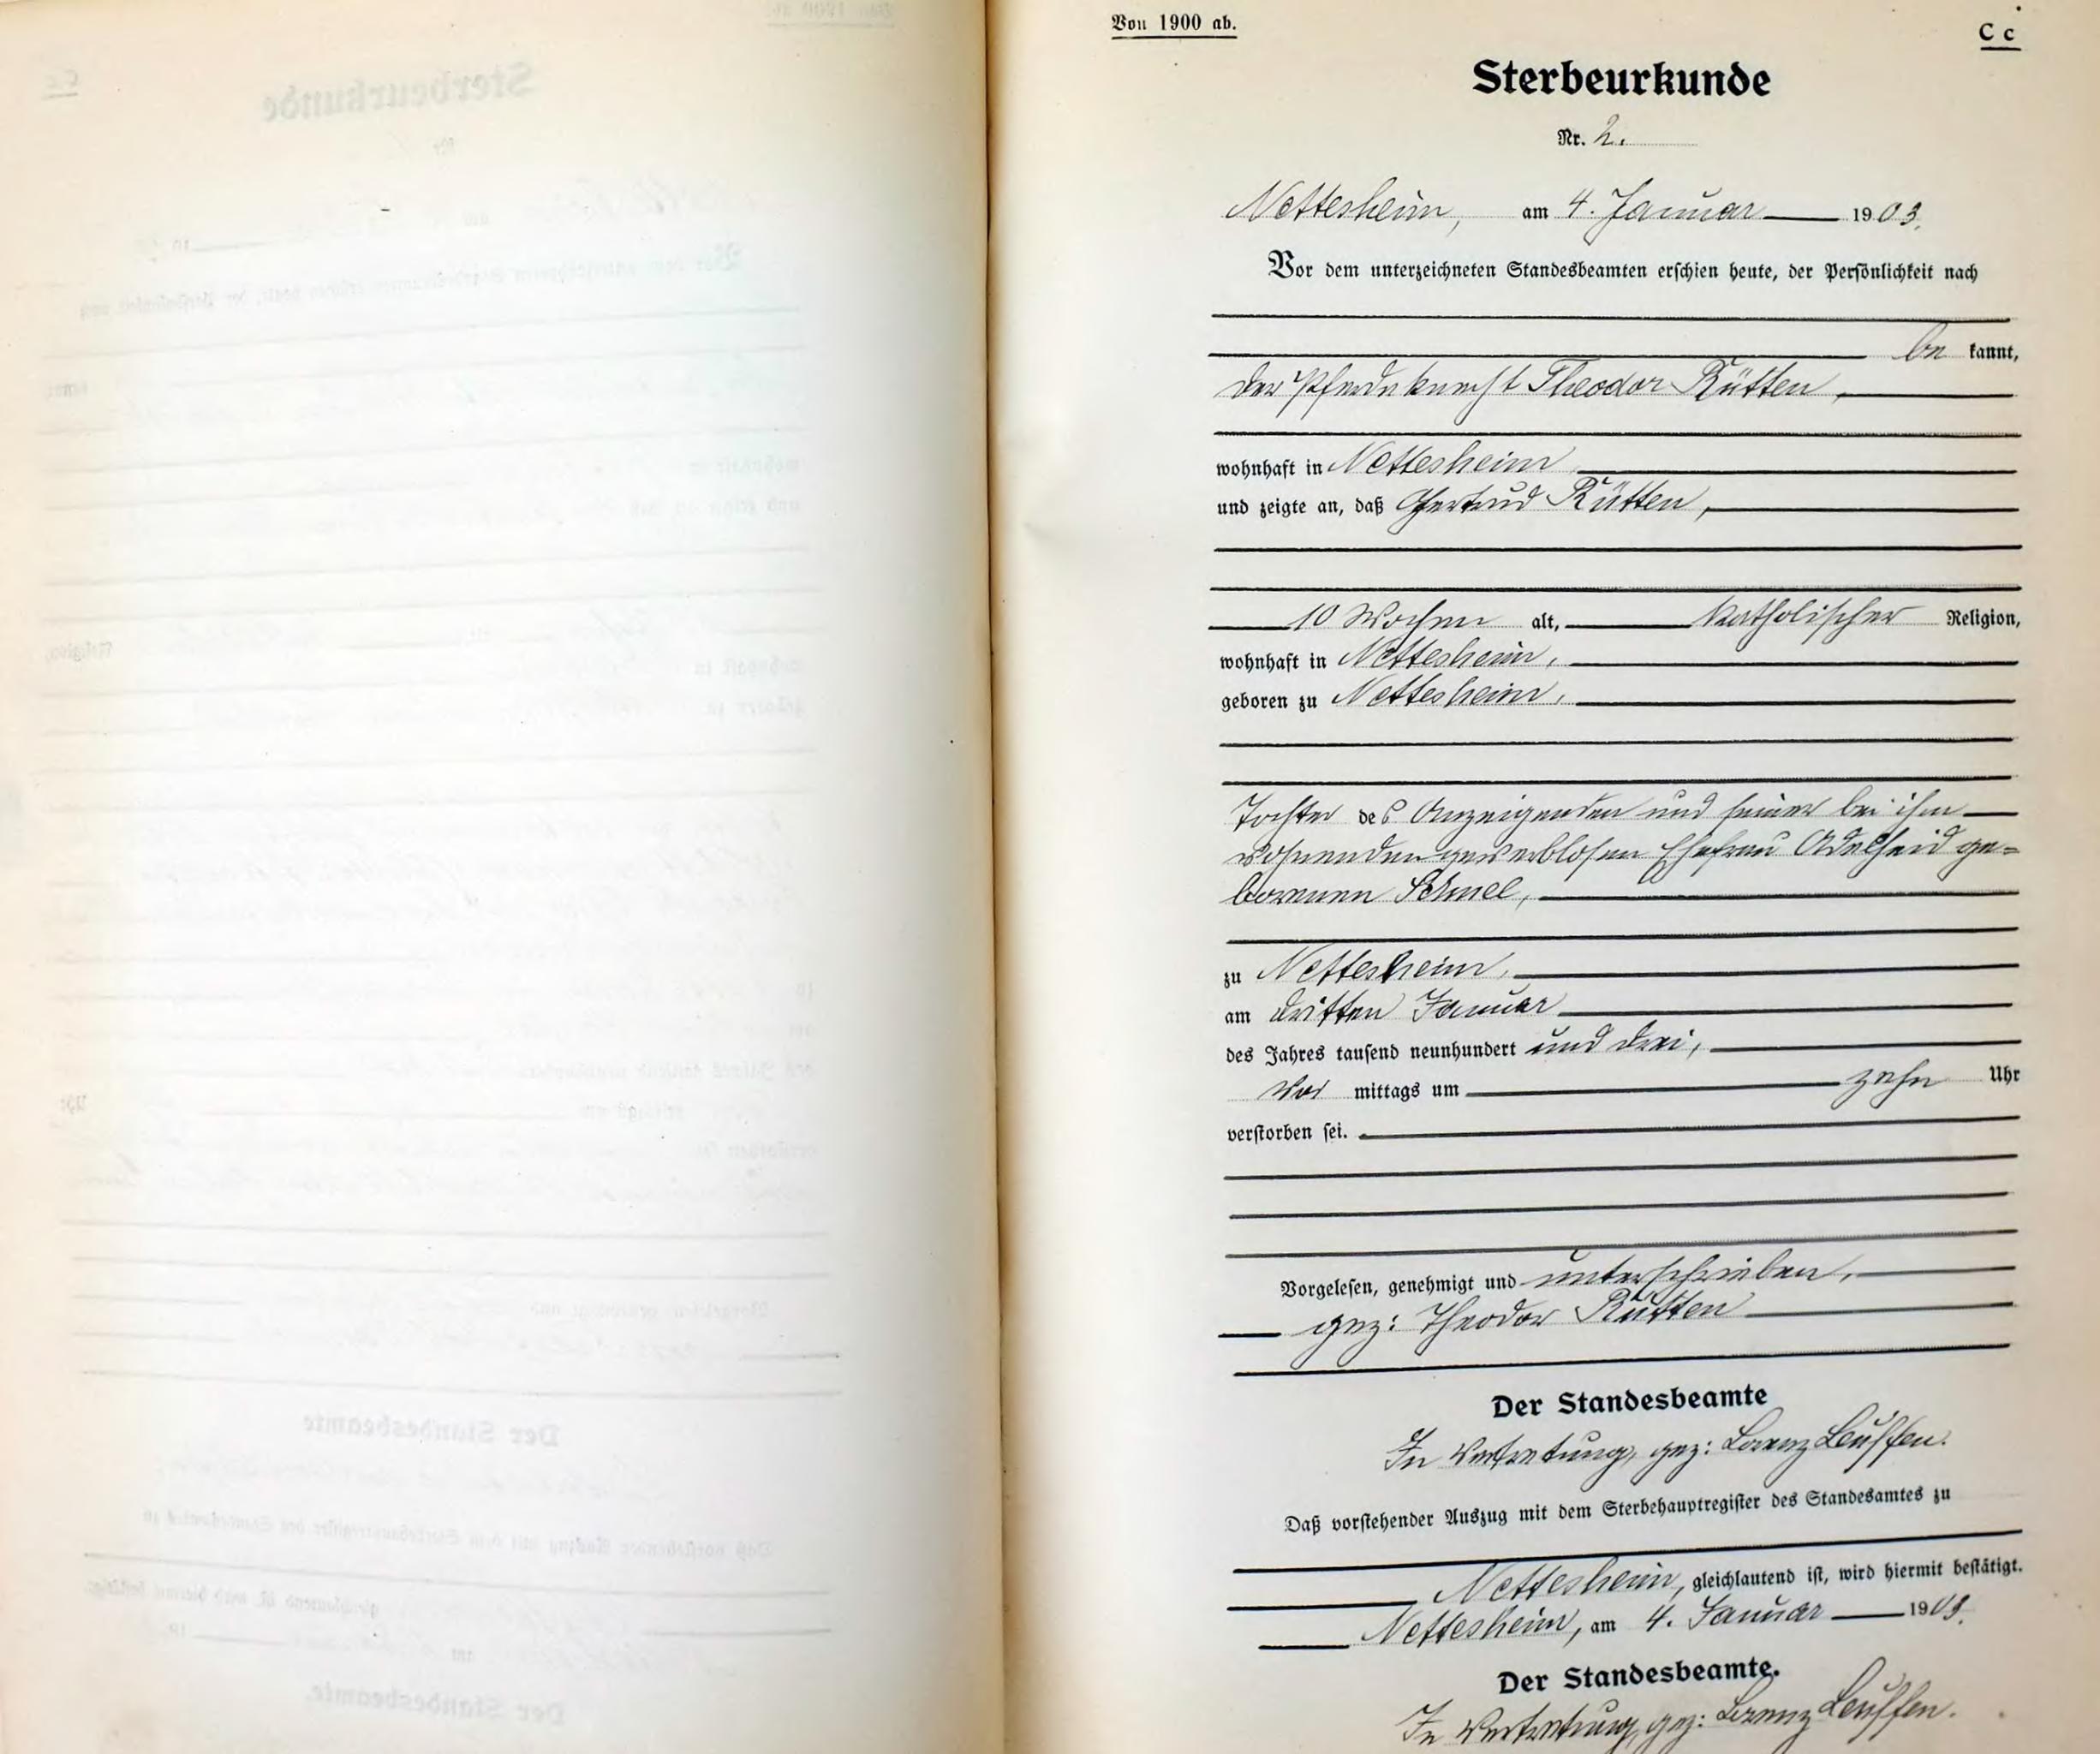 Von 1900 ab.
C c
Sterbeurkunde
Nr. 2.
Nettesheim, am 4. Januar 1903.
Vor dem unterzeichneten Standesbeamten erschien heute, der Persönlichkeit nach
be kannt,
der Pferdeknecht Theodor Rütten,
wohnhaft in Nettesheim
und zeigte an, daß Gertrud Rütten,
10 Wochen alt, katholischer Religion,
wohnhaft in Nettesheim,
geboren zu Nettesheim,
Tochter des Anzeigenden und seiner bei ihm
wohnenden gewerblosen Ehefrau Adelheid ge=
borenen
zu Nettesheim,
am dritten Januar
des Jahres tausend neunhundert und drei,
Vor mittags um zehn Uhr
verstorben sei.
Vorgelesen, genehmigt und unterschrieben,
gez: Theodor Rütten
Der Standesbeamte
In Vertretung, gez: Lorenz Leuffen.
Daß vorstehender Auszug mit dem Sterbehauptregister des Standesamtes zu
Nettesheim, gleichlautend ist, wird hiermit bestätigt.
Nettesheim, am 4. Januar 1903.
Der Standesbeamte.
In Vertretung, gez: Lorenz Leuffen.